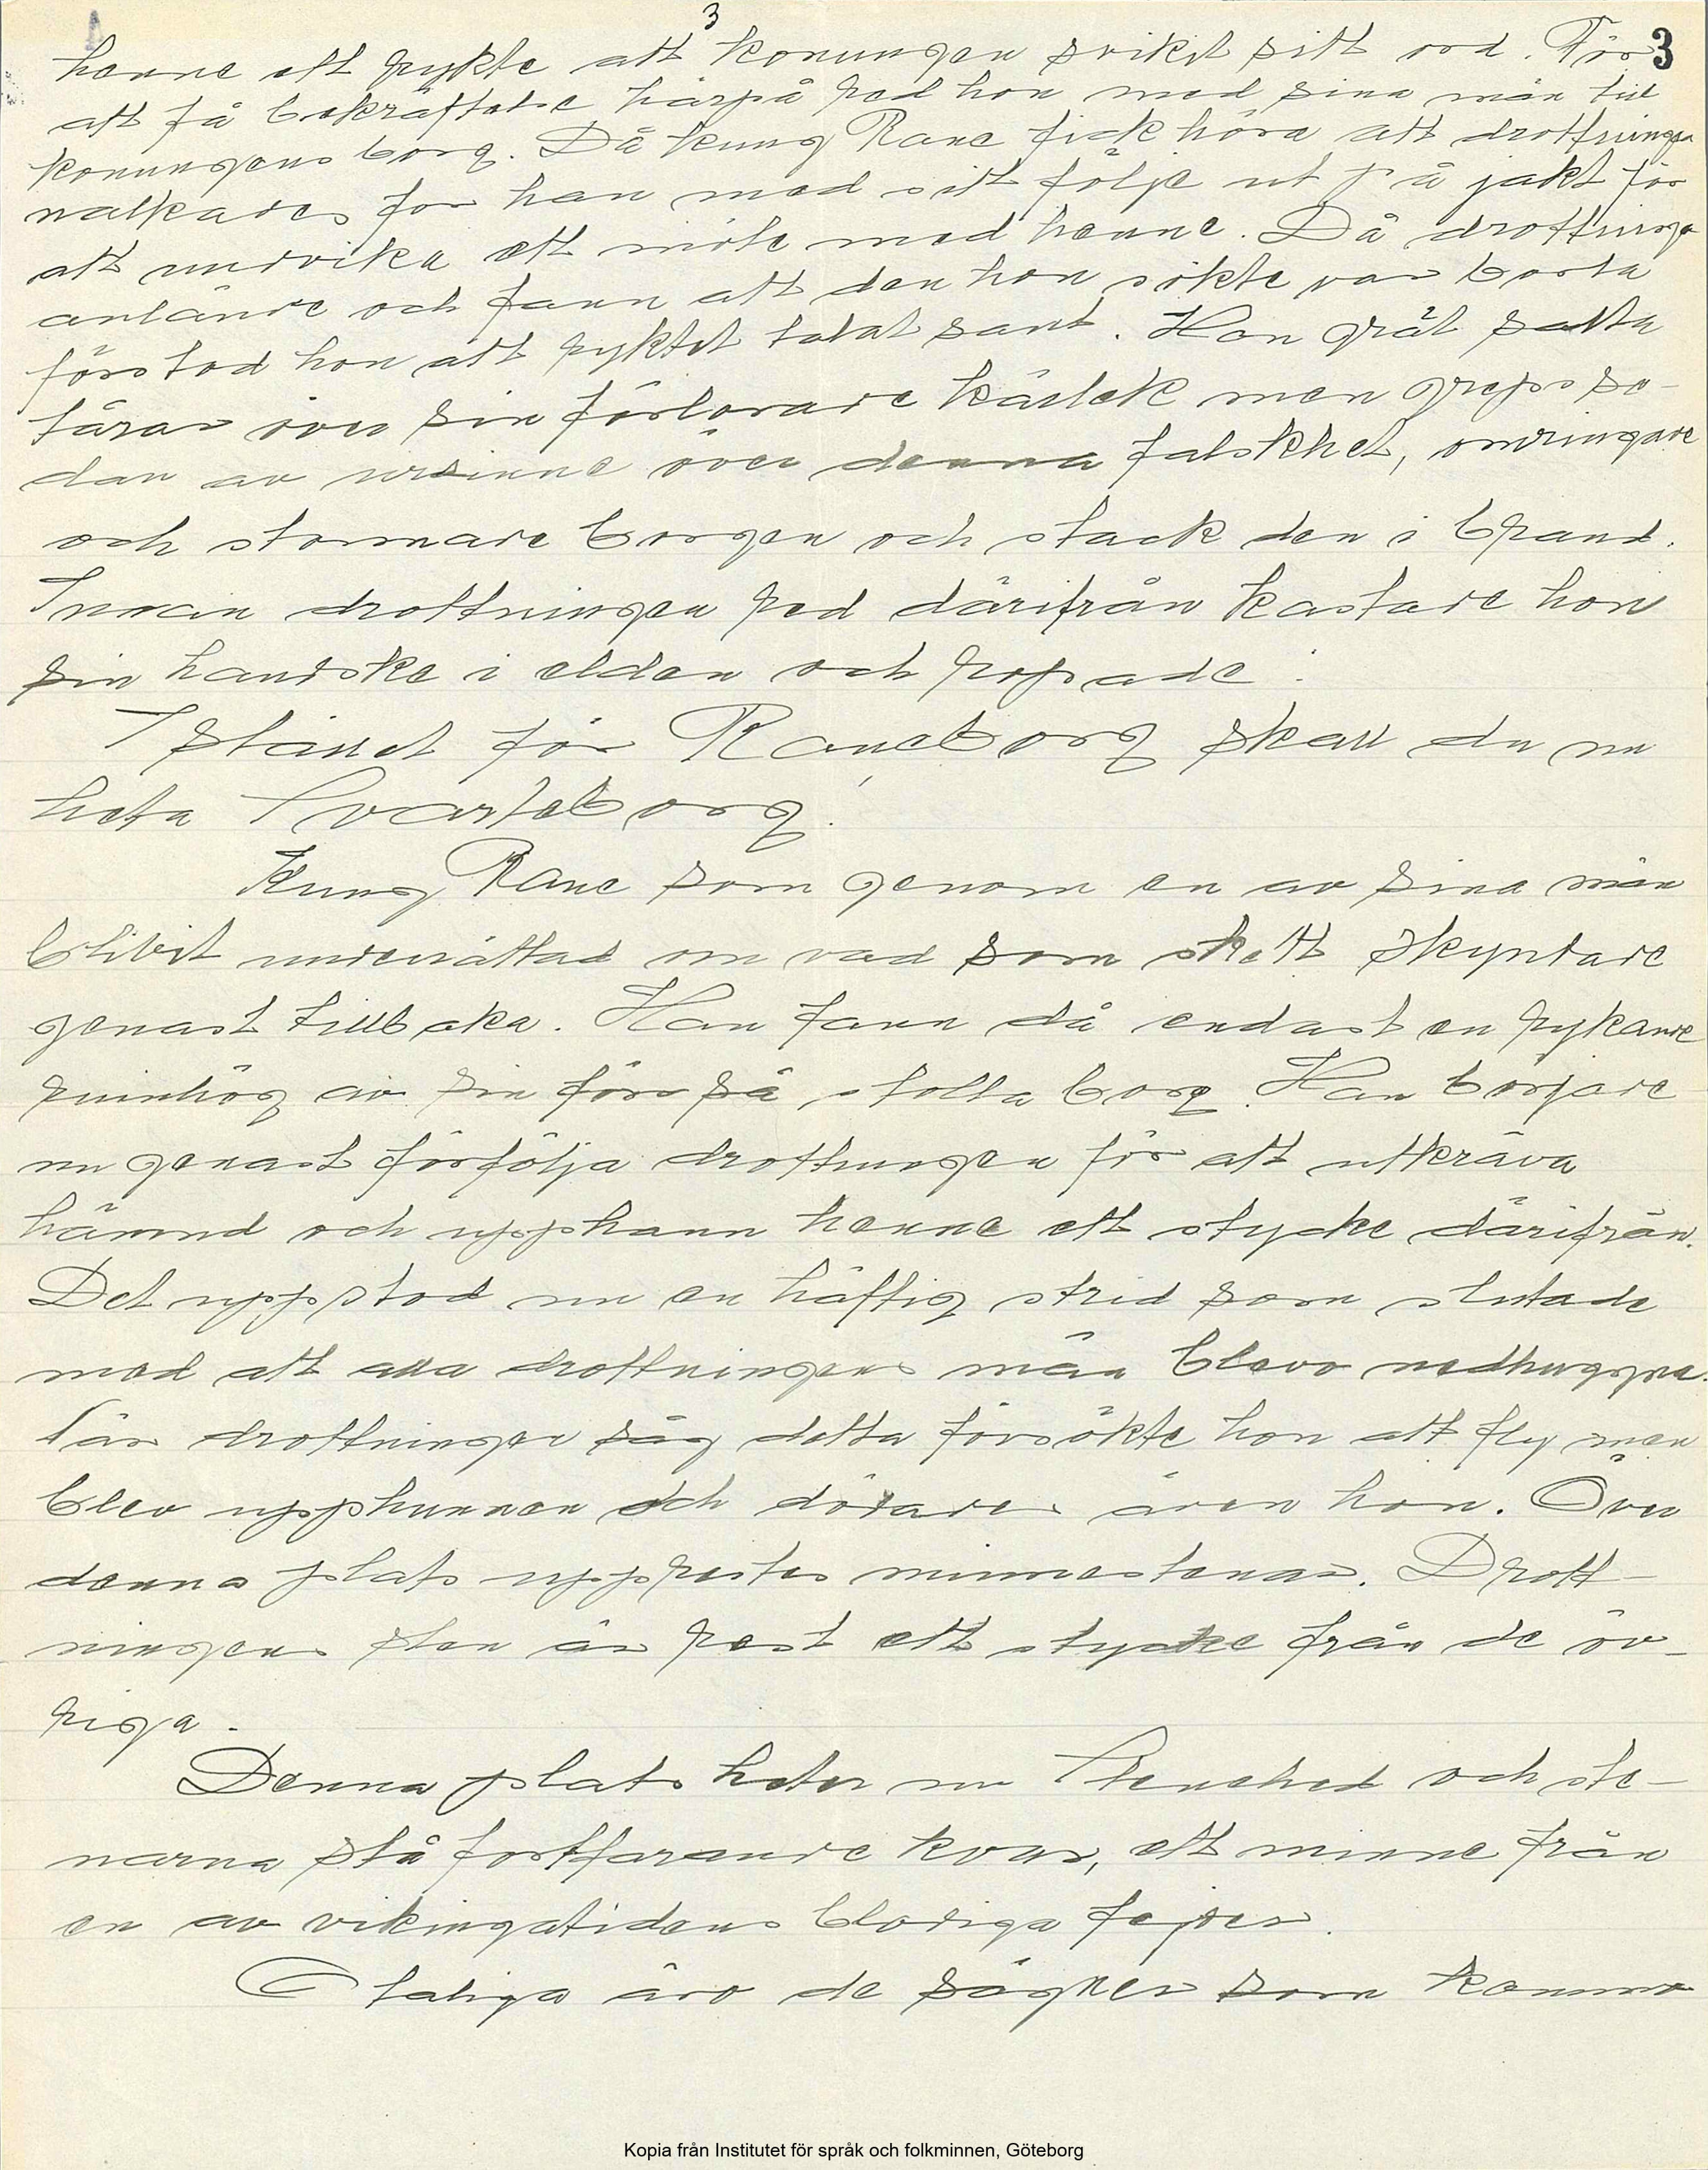 3
3
henne ett rykte att konungen svikit sitt ord. För
att få bekräftelse härpå red hon med sina män till
konungens borg. Då kung Rane fick höra att drottningen
nalkades for han med sitt följe ut på jakt för
att undvika ett möte med henne. Då drottningen
anlände och fann att den hon sökte var borta
förstod hon att ryktet talat sant. Hon grät salta
tårar över sin förlorade kärlek men greps se-
dan av ursinne över denna falskhet, omringade
och stormade borgen och stack den i brand.
Innan drottningen red därifrån kastade hon
sin handske i elden och ropade:
I stället för Raneborg skall du nu
heta Svarteborg!
Kung Rane som genom en av sina män
blivit underrättad om vad som skett skyndade
genast tillbaka. Han fann då endast en rykande
ruinhög av sin förr så stolta borg. Han började
nu genast förfölja drottningen för att utkräva
hämnd och upphann henne ett stycke därifrån.
Det uppstod nu en häftig strid som slutade
med att alla drottningens män blevo nedhuggna.
När drottningen såg detta försökte hon att fly men
blev upphunnen och dödades även hon. Över
denna plats upprestes minnestenar. Drott-
ningens sten är rest ett stycke från de öv-
riga.
Denna plats heter nu Stenehed och ste-
narna stå fortfarande kvar, ett minne från
en av vikingatidens blodiga fejder.
Otaliga äro de sägner som komma
Kopia från Institutet för språk och folkminnen, Göteborg